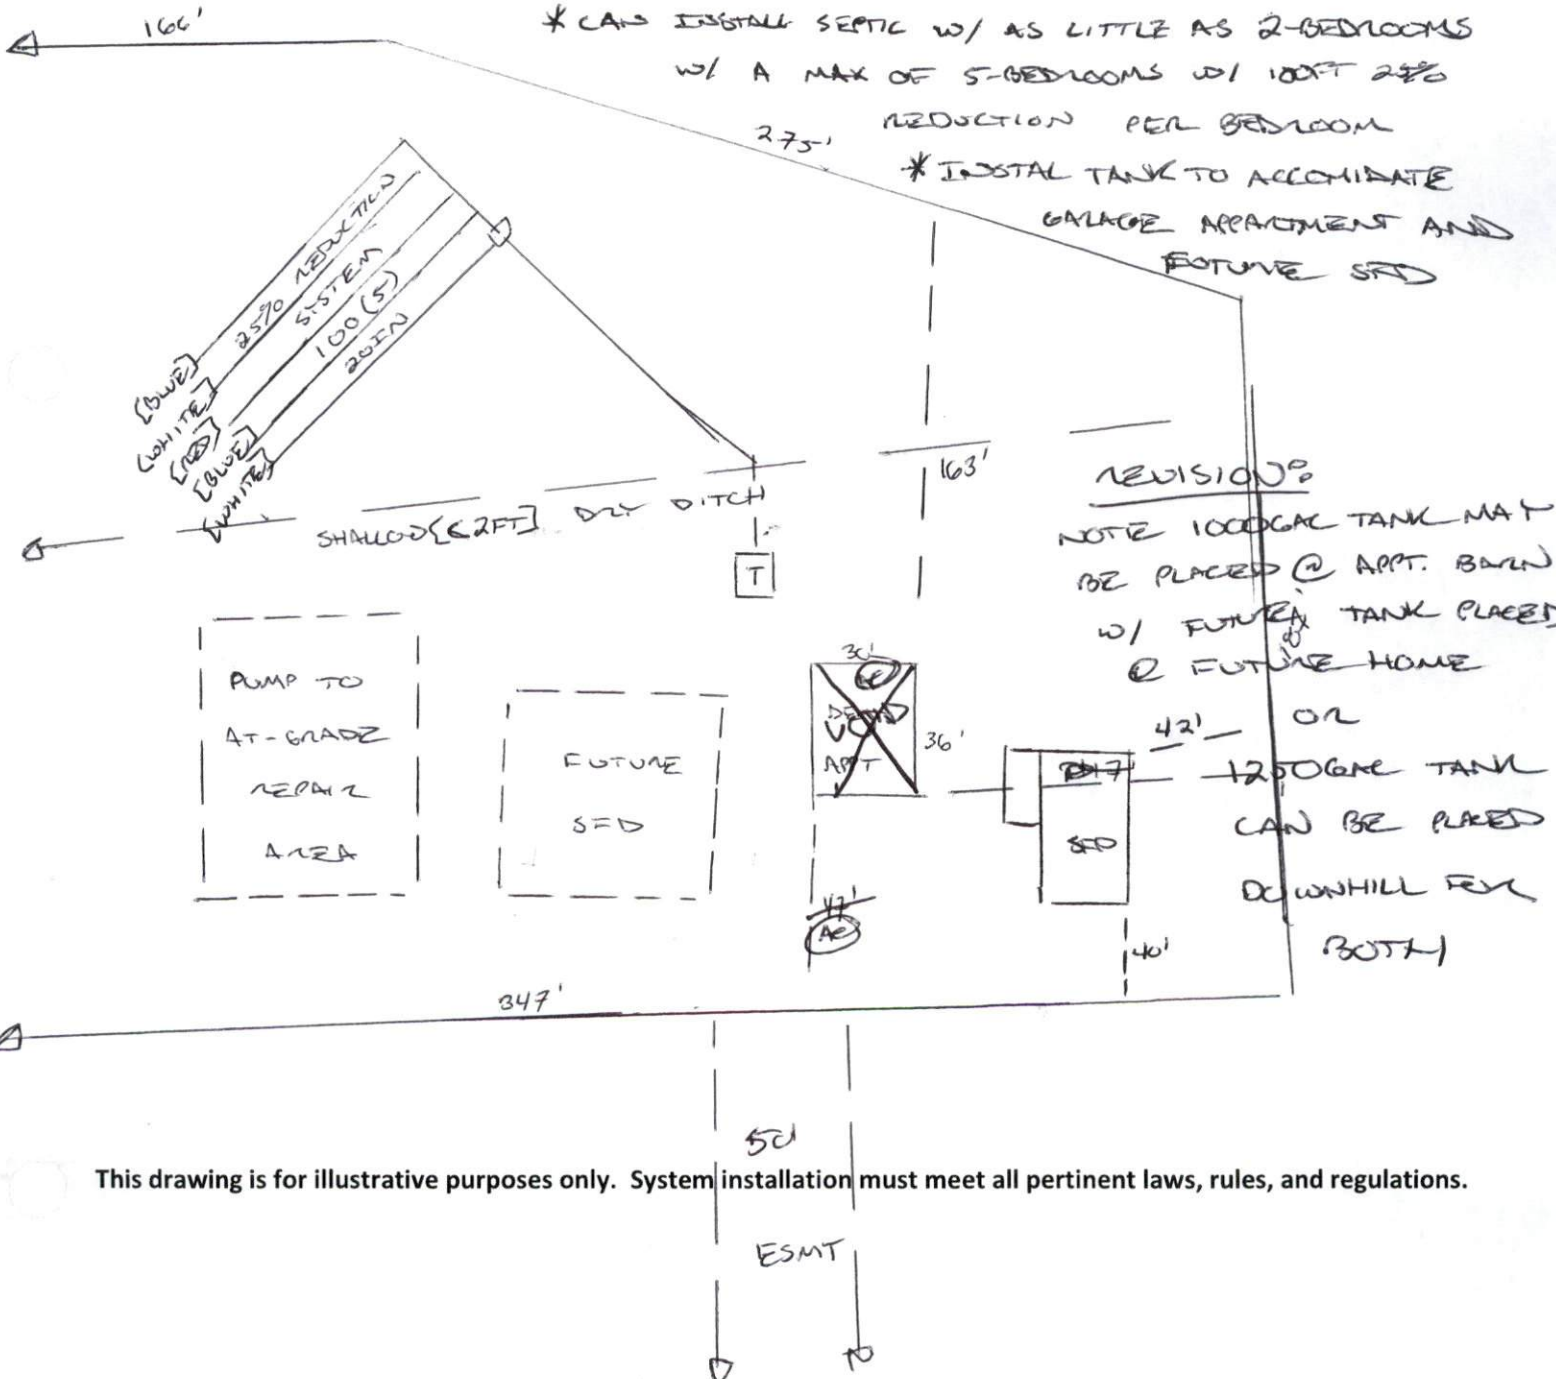 166'
* CAN INSTALL SEPTIC W/ AS LITTLE AS 2-BEDROOMS
W/ A MAX OF 5-BEDROOMS W/ 100FT 25%
REDUCTION PER BEDROOM
275'
* INSTAL TANK TO ACCOMIDATE
GARAGE APPARTMENT AND
FUTURE SFD
25% REDUCTION
SYSTEM
100(5)
20IN
[BLUE]
[WHITE]
[RED]
[BLUE]
[WHITE]
163'
SHALLOW [<2FT] DRY DITCH
T
REVISION:
NOTE 1000GAL TANK MAY
BE PLACED @ APPT. BARN
W/ FUTURE TANK PLACED
@ FUTURE HOME
OR
1250GAL TANK
CAN BE PLACED
DOWNHILL FOR
BOTH
PUMP TO
AT-GRADE
REPAIR
AREA
FUTURE
SFD
30'
APPT
36'
42'
SFD
47'
AC
40'
347'
50'
This drawing is for illustrative purposes only. System installation must meet all pertinent laws, rules, and regulations.
ESMT